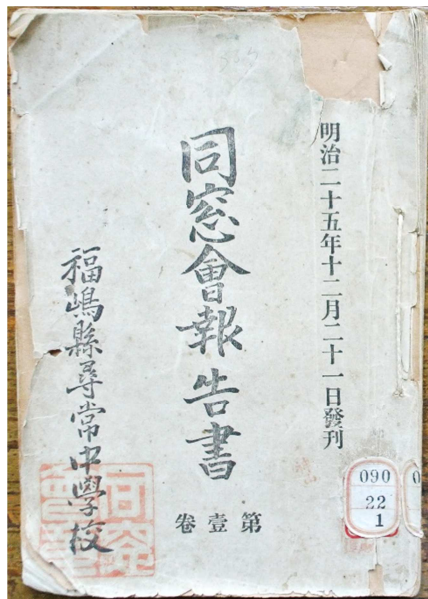 明治二十五年十二月二十一日發刊
同窓會報告書
第壹卷
福嶋縣尋常中學校
同窓
會章
090
22
1
0